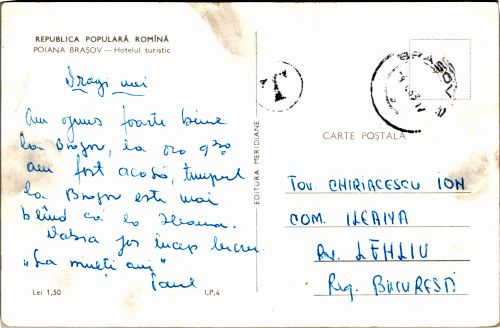 REPUBLICA POPULARĂ ROMÎNĂ
POIANA BRAȘOV — Hotelul turistic
Dragi mei
Am ajuns foarte bine
la Brașov, la ora 9 30
am fost acasă, timpul
la Brașov este mai
blînd ca la Ileana.
jos încep lucru
„La mulți ani”
Lei 1,50
I.P.4
EDITURA MERIDIANE
T
BRAȘOV
CARTE POȘTALĂ
Tov. CHIRIACESCU ION
COM. ILEANA
LEHLIU
Reg. BUCUREȘTI